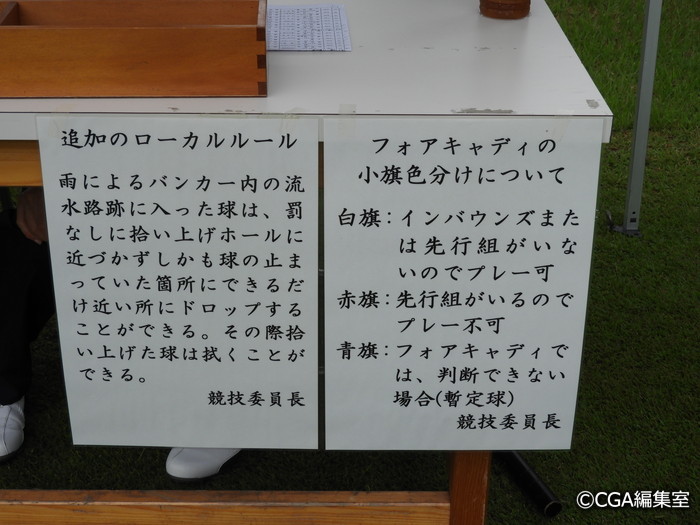 追加のローカルルール
雨によるバンカー内の流
水路跡に入った球は、罰
なしに拾い上げホールに
近づかずしかも球の止ま
っていた箇所にできるだ
け近い所にドロップする
ことができる。その際拾
い上げた球は拭くことが
できる。
競技委員長
フォアキャディの
小旗色分けについて
白旗：インバウンズまた
は先行組がいな
いのでプレー可
赤旗：先行組がいるので
プレー不可
青旗：フォアキャディで
は、判断できない
場合(暫定球)
競技委員長
©CGA編集室